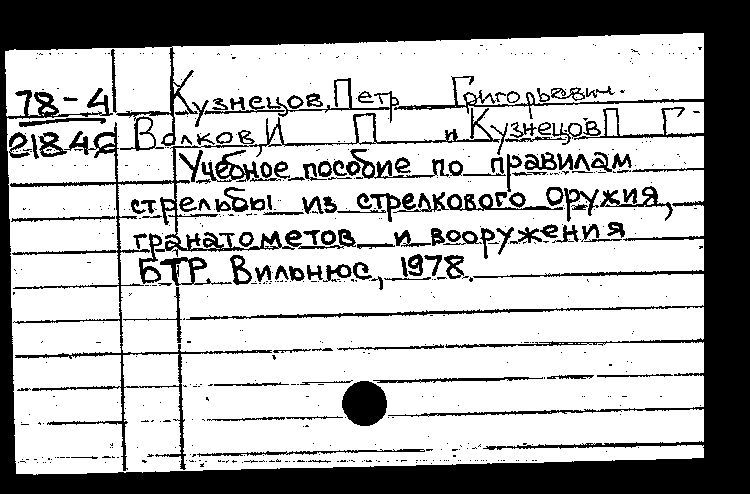 78-4 Кузнецов, Петр Григорьевич.
21846 Волков, И П и Кузнецов П Г
Учебное пособие по правилам
стрельбы из стрелкового оружия,
гранатометов и вооружения
БТР. Вильнюс, 1978.